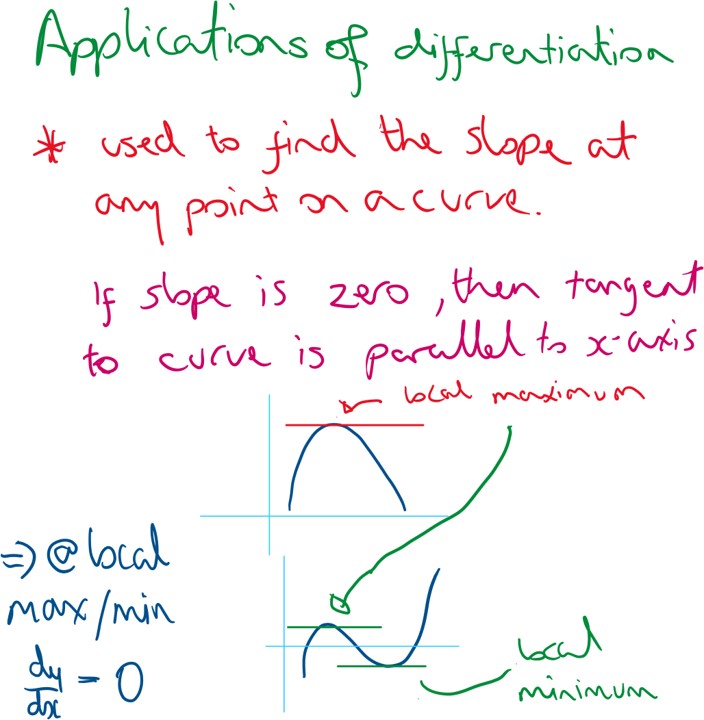 Applications of differentiation
* used to find the slope at
any point on a curve.
If slope is zero, then tangent
to curve is parallel to x-axis
local maximum
⇒ @ local
max/min
dy/dx = 0
local
minimum